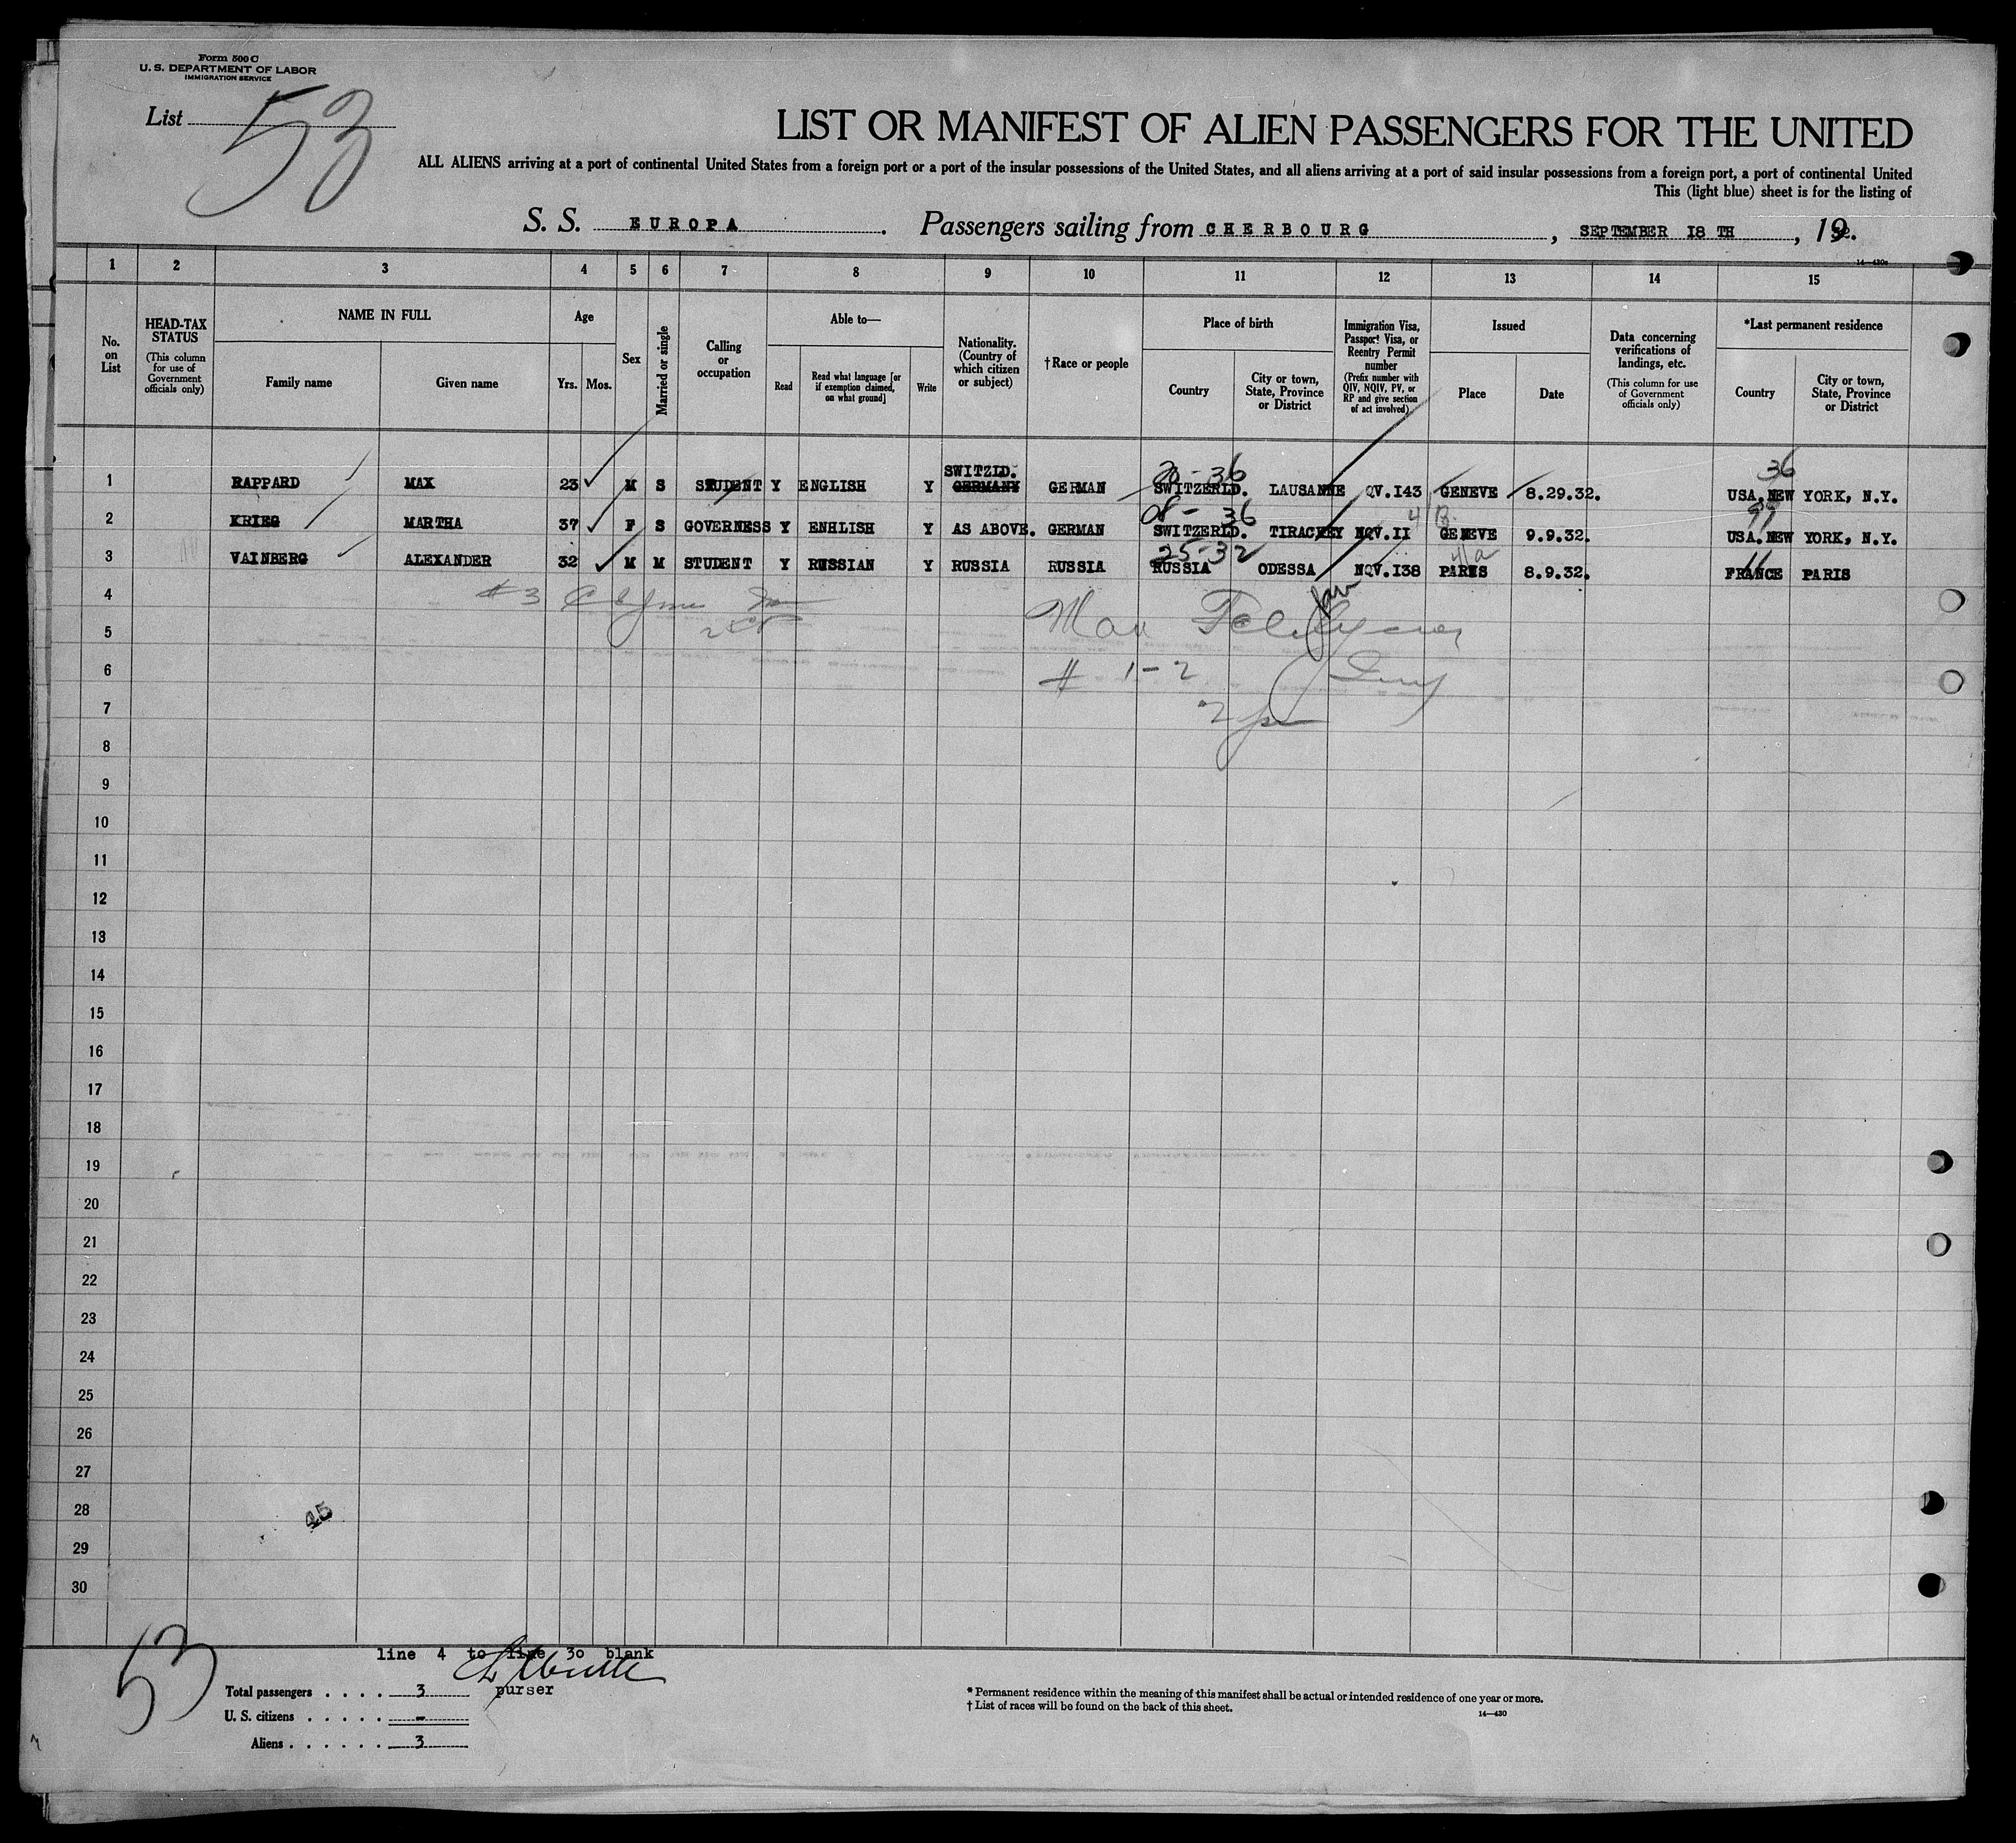 Form 500 C
U. S. DEPARTMENT OF LABOR
IMMIGRATION SERVICE
List 53
LIST OR MANIFEST OF ALIEN PASSENGERS FOR THE UNITED
ALL ALIENS arriving at a port of continental United States from a foreign port or a port of the insular possessions of the United States, and all aliens arriving at a port of said insular possessions from a foreign port, a port of continental United
This (light blue) sheet is for the listing of
S. S. EUROPA. Passengers sailing from CHERBOURG, SEPTEMBER I8 TH, 1932.
14—430c
1 2 3 4 5 6 7 8 9 10 11 12 13 14 15
No. on List
HEAD-TAX STATUS (This column for use of Government officials only)
NAME IN FULL
Family name Given name
Age
Yrs. Mos.
Sex
Married or single
Calling or occupation
Able to—
Read Read what language [or if exemption claimed, on what ground] Write
Nationality. (Country of which citizen or subject)
† Race or people
Place of birth
Country City or town, State, Province or District
Immigration Visa, Passport Visa, or Reentry Permit number (Prefix number with QIV, NQIV, PV, or RP and give section of act involved)
Issued
Place Date
Data concerning verifications of landings, etc. (This column for use of Government officials only)
*Last permanent residence
Country City or town, State, Province or District
SWITZLD. 36 36
1 RAPPARD MAX 23 M S STUDENT Y ENGLISH Y GERMANY GERMAN SWITZERLD. LAUSANNE QV.I43 GENEVE 8.29.32. USA.NEW YORK, N.Y.
08 - 36 99
2 KRIEG MARTHA 37 F S GOVERNESS Y ENHLISH Y AS ABOVE. GERMAN SWITZERLD. TIRACHEY NQV.II GENEVE 9.9.32. USA.NEW YORK, N.Y.
25-32 4/a 11
3 VAINBERG ALEXANDER 32 M M STUDENT Y RUSSIAN Y RUSSIA RUSSIA RUSSIA ODESSA NQV.I38 PARIS 8.9.32. FRANCE PARIS
4 #3
5 Max
6 # 1-2
7
8
9
10
11
12
13
14
15
16
17
18
19
20
21
22
23
24
25
26
27
28 45
29
30
53
line 4 to line 3o blank
purser
Total passengers . . . . 3
U. S. citizens . . . . . -
Aliens . . . . . . 3
* Permanent residence within the meaning of this manifest shall be actual or intended residence of one year or more.
† List of races will be found on the back of this sheet.
14—430